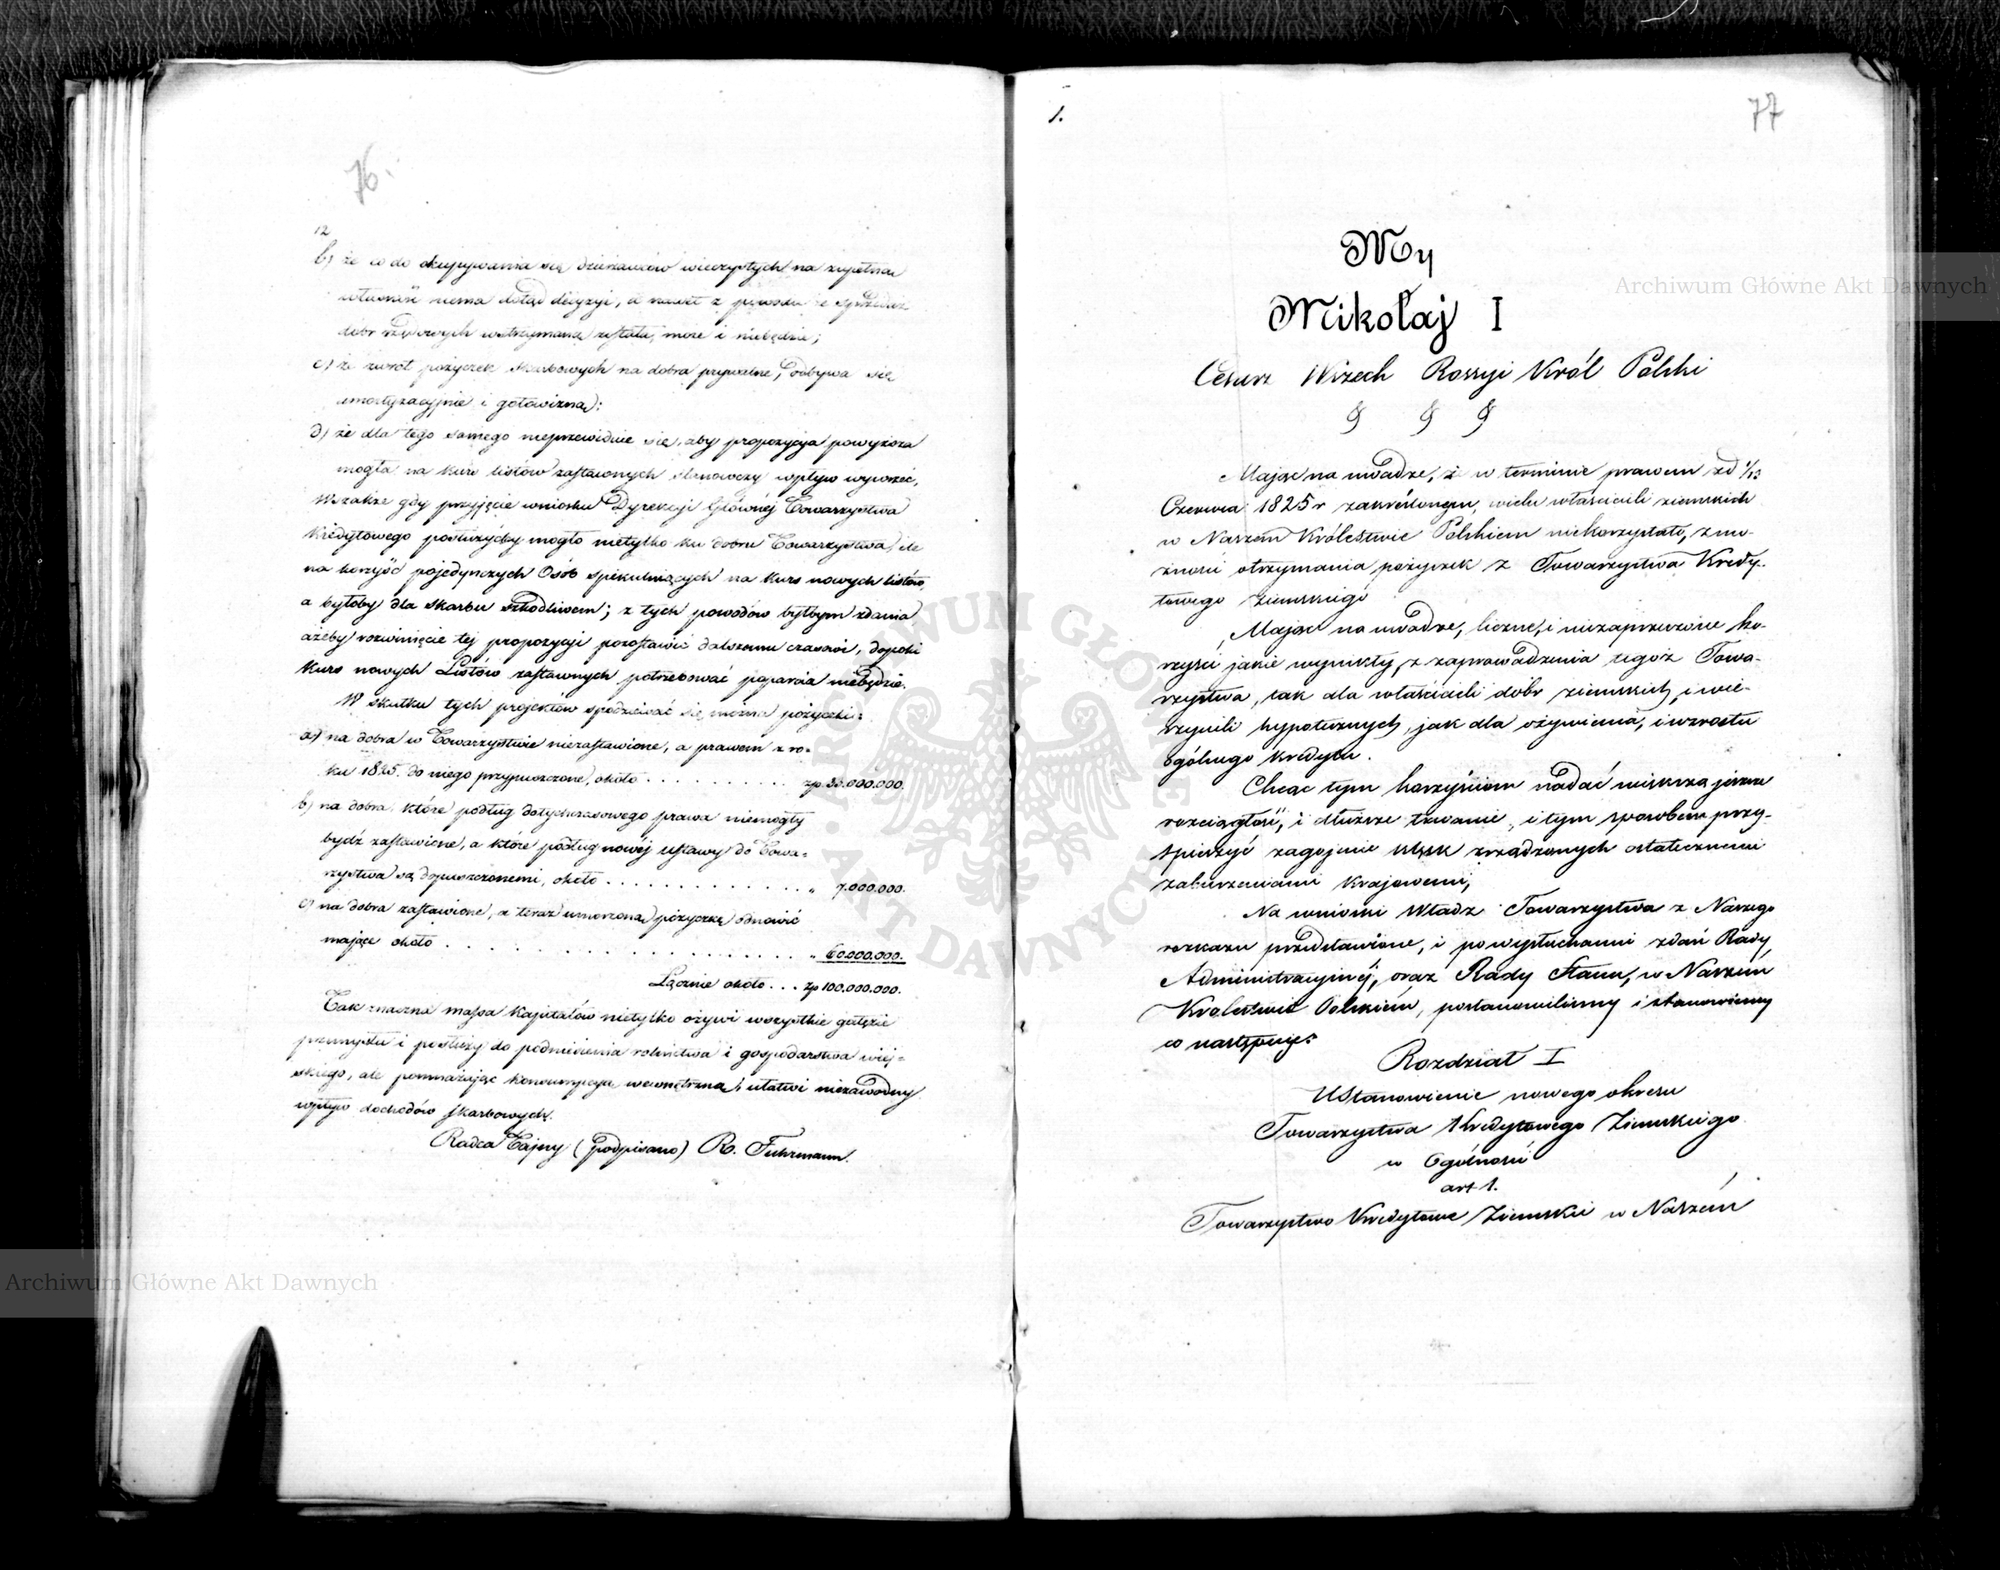 76.
12
b) że co do okupywania się dzierżawców wieczystych na zupełną
własność niema dotąd decyzyi, a nawet z powodu że sprzedaż
dobr rządowych wstrzymaną została, może i niebędzie;
c) że zwrot pożyczek skarbowych na dobra prywatne, odbywa się
amortyzacyjnie i gotowizną:
d) że dla tego samego nieprzewidzie się, aby propozycja powyższa
mogła na kurs listów zastawnych stanowczy wpływ wywrzeć,
Wszakże gdy przyjęcie wniosku Dyrekcji Głównéj Towarzystwa
Kredytowego posłużyćby mogło nietylko ku dobru Towarzystwa, ile
na korzyść pojedynczych Osób spekulujących na kurs nowych listów,
a byłoby dla skarbu szkodliwem; z tych powodów byłbym zdania
ażeby rozwinięcie tej propozycji pozostawić dalszemu czasowi, dopoki
kurs nowych Listów zastawnych potrzebować poparcia niebędzie.
W skutku tych projektów spodziewać się można pożyczki:
a) na dobra w Towarzystwie niezastawione, a prawem z ro-
ku 1825. do niego przypuszczone, około . . . . . . . . . . zp. 33.000.000.
b) na dobra które podług dotychczasowego prawa niemogły
bydź zastawione, a które podług nowéj ustawy do Towa-
rzystwa są dopuszczonemi, około . . . . . . . . . . . . . . „ 7.000.000.
c) na dobra zastawione, a teraz umorzoną pożyczkę odnowić
mające około . . . . . . . . . . . . . . . . . . „ 60.000.000.
Łącznie około . . . zp 100.000.000.
Tak znaczna massa kapitałów nietylko ożywi wszystkie gałęzie
przemysłu i posłuży do podniesienia rolnictwa i gospodarstwa wiej-
skiego, ale pomnażając konsumpcyą wewnętrzną, ułatwi niezawodny
wpływ dochodów skarbowych.
Radca Tajny (podpisano) R. Fuhrmann.
1.
77
My
Mikołaj I
Cesarz Wszech Rossyi Król Polski
§ § §
Mając na uwadze, że w terminie prawem zd 1/13
Czerwca 1825 r zakreślonym, wielu właścicieli ziemskich
w Naszém Królestwie Polskiem niekorzystało, z mo-
żności otrzymania pożyczek z Towarzystwa Kredy-
towego Ziemskiego
Mając na uwadze, liczne, i niezaprzeczone ko-
rzyści jakie wynikły, z zaprowadzenia tegoż Towa-
rzystwa, tak dla właścicieli dóbr ziemskich, i wie-
rzycieli hypotecznych, jak dla ożywienia, i wzrostu
ogólnego kredytu.
Chcąc tym korzyściom nadać większą jeszcze
rozciągłość, i dłuższe trwanie, i tym sposobem przy-
spieszyć zagojenie klęsk zrządzonych ostatecznemi
zaburzeniami krajowemi,
Na wnioski Władz Towarzystwa z Naszego
rozkazu przedstawione, i po wysłuchaniu zdań Rady
Administracyjnéj, oraz Rady Stanu, w Naszém
Królestwie Polskiém, postanowiliśmy i stanowiemy
co następuje:
Rozdział I
Ustanowienie nowego okresu
Towarzystwa Kredytowego Ziemskiego
w Ogólności
art 1.
Towarzystwo Kredytowe Ziemskie w Naszém
Archiwum Główne Akt Dawnych
Archiwum Główne Akt Dawnych
ARCHIWUM GŁÓWNE AKT DAWNYCH